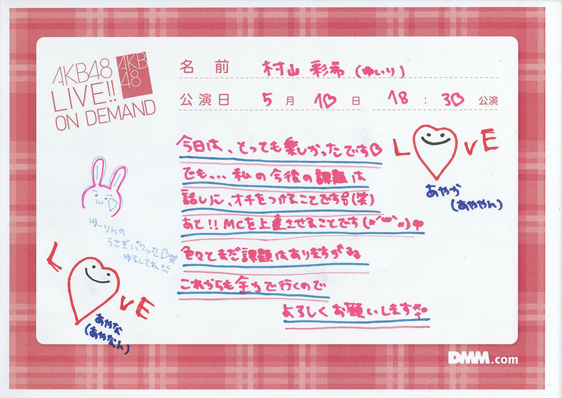 AKB48
LIVE!!
ON DEMAND
AKB
48
名前 村山 彩希 (ゆいり)
公演日 5月 10日 18:30 公演
今日は、とっても楽しかったです♡
でも…私の今後の課題は
話しに、オチをつけることです!!(笑)
あと!!MCを上達させることです
色々とまだ課題はありますがね
これからも全力で行くので
よろしくお願いします
LOVE
あやか
(あややん)
ゆーりんの
うさぎパクった♡笑
ゆるしてね
LOVE
あやな
(あやなん)
DMM.com